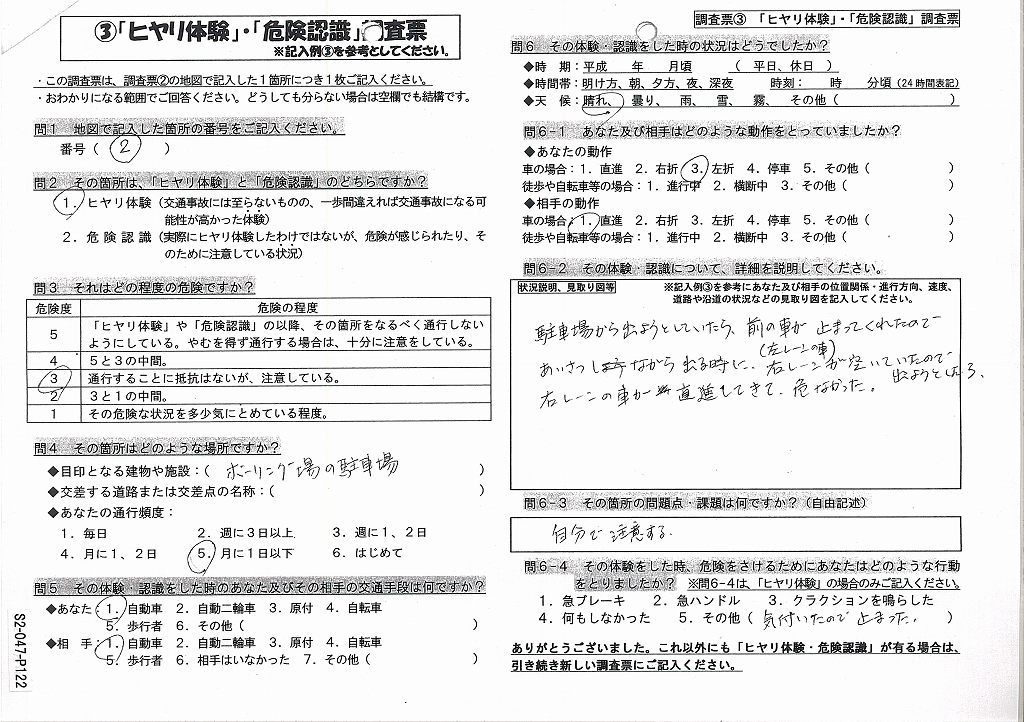 ③「ヒヤリ体験」・「危険認識」調査票
※記入例③を参考としてください。
・この調査票は、調査票②の地図で記入した1箇所につき1枚ご記入ください。
・おわかりになる範囲でご回答ください。どうしても分らない場合は空欄でも結構です。
問1 地図で記入した箇所の番号をご記入ください。
番号( 2 )
問2 その箇所は、「ヒヤリ体験」と「危険認識」のどちらですか?
1.ヒヤリ体験(交通事故には至らないものの、一歩間違えれば交通事故になる可
能性が高かった体験)
2.危険認識(実際にヒヤリ体験したわけではないが、危険が感じられたり、そ
のために注意している状況)
問3 それはどの程度の危険ですか?
危険度 危険の程度
5 「ヒヤリ体験」や「危険認識」の以降、その箇所をなるべく通行しない
ようにしている。やむを得ず通行する場合は、十分に注意をしている。
4 5と3の中間。
3 通行することに抵抗はないが、注意している。
2 3と1の中間。
1 その危険な状況を多少気にとめている程度。
問4 その箇所はどのような場所ですか?
◆目印となる建物や施設:( ボーリング場の駐車場 )
◆交差する道路または交差点の名称:( )
◆あなたの通行頻度:
1.毎日 2.週に3日以上 3.週に1、2日
4.月に1、2日 5.月に1日以下 6.はじめて
問5 その体験・認識をした時のあなた及びその相手の交通手段は何ですか?
◆あなた:1.自動車 2.自動二輪車 3.原付 4.自転車
5.歩行者 6.その他( )
◆相 手:1.自動車 2.自動二輪車 3.原付 4.自転車
5.歩行者 6.相手はいなかった 7.その他( )
S2-047-P122
調査票③ 「ヒヤリ体験」・「危険認識」調査票
問6 その体験・認識をした時の状況はどうでしたか?
◆時 期:平成 年 月頃 ( 平日、休日 )
◆時間帯:明け方、朝、夕方、夜、深夜 時刻: 時 分頃(24時間表記)
◆天 候:晴れ、 曇り、 雨、 雪、 霧、 その他( )
問6-1 あなた及び相手はどのような動作をとっていましたか?
◆あなたの動作
車の場合:1.直進 2.右折 3.左折 4.停車 5.その他( )
徒歩や自転車等の場合:1.進行中 2.横断中 3.その他( )
◆相手の動作
車の場合:1.直進 2.右折 3.左折 4.停車 5.その他( )
徒歩や自転車等の場合:1.進行中 2.横断中 3.その他( )
問6-2 その体験・認識について、詳細を説明してください。
状況説明、見取り図等 ※記入例③を参考にあなた及び相手の位置関係・進行方向、速度、
道路や沿道の状況などの見取り図を記入してください。
駐車場から出ようとしていたら、前の車が止まってくれたので
(左レーンの車)
あいさつしながら出る時に、右レーンが空いていたので
出ようとしたら、
右レーンの車が直進してきて、危なかった。
問6-3 その箇所の問題点・課題は何ですか?(自由記述)
自分で注意する。
問6-4 その体験をした時、危険をさけるためにあなたはどのような行動
をとりましたか? ※問6-4は、「ヒヤリ体験」の場合のみご記入ください。
1.急ブレーキ 2.急ハンドル 3.クラクションを鳴らした
4.何もしなかった 5.その他( 気付いたので止まった。 )
ありがとうございました。これ以外にも「ヒヤリ体験・危険認識」が有る場合は、
引き続き新しい調査票にご記入ください。